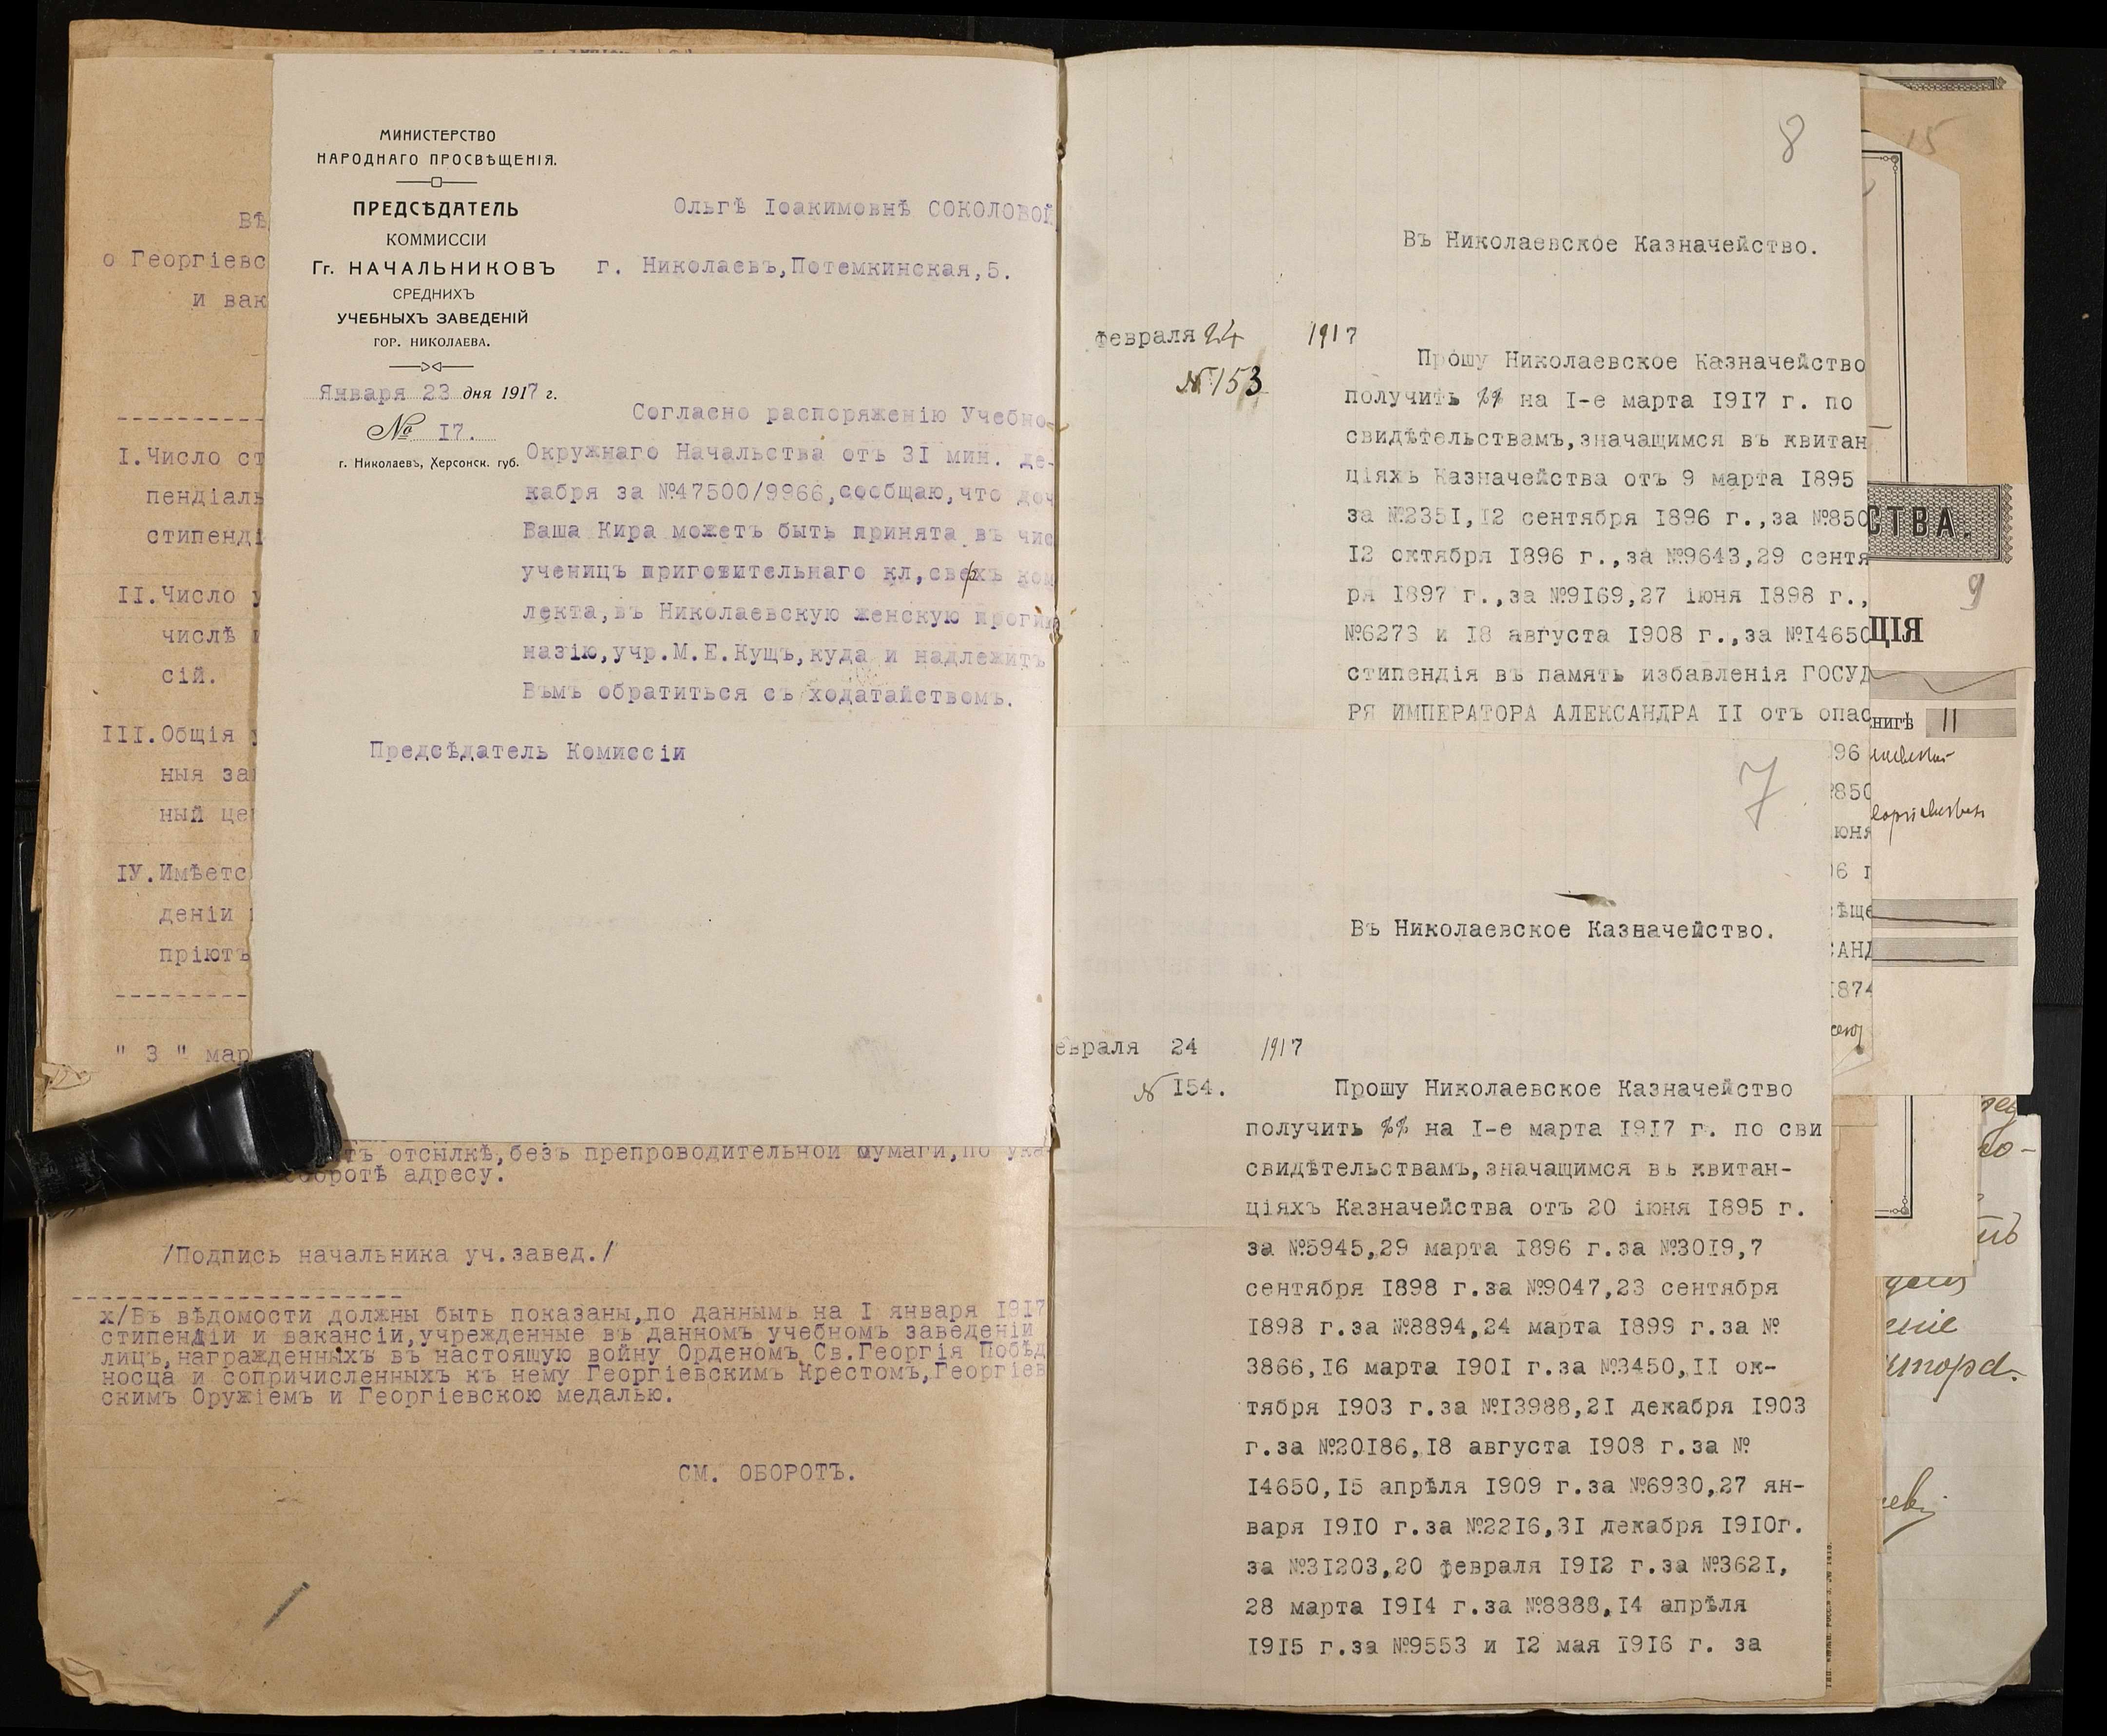 МИНИСТЕРСТВО
НАРОДНАГО ПРОСВѢЩЕНІЯ.
ПРЕДСѢДАТЕЛЬ
КОММИССІИ
Гг. НАЧАЛЬНИКОВЪ
СРЕДНИХЪ
УЧЕБНЫХЪ ЗАВЕДЕНІЙ
ГОР. НИКОЛАЕВА.
Января 23 дня 1917 г.
№ 17.
г. Николаевъ, Херсонск. губ.
Ольгѣ Іоакимовнѣ СОКОЛОВОЙ
г. Николаевъ,Потемкинская,5.
Согласно распоряженію Учебно-
Окружнаго Начальства отъ 3I мин. де-
кабря за №47500/9966,сообщаю,что доч
Ваша Кира можетъ быть принята въ чис
ученицъ приготительнаго кл,сверхъ ком
лекта,въ Николаевскую женскую прогим
назію,учр.М.Е.Кущъ,куда и надлежитъ
Въмъ обратиться съ ходатайствомъ.
Предсѣдатель Комиссіи
ВѢ
о Георгіевс
и вак
I.Число ст
пендіаль
стипенді
II.Число у
числѣ
сій.
III.Общія у
ныя за
ный це
IУ.Имѣетс
деніи
пріютъ
" 3 " мар
тъ отсылкѣ,безъ препроводительной бумаги,по ука
оротѣ адресу.
/Подпись начальника уч.завед./
х/Въ вѣдомости должны быть показаны,по даннымъ на I января I9I7
стипендіи и вакансіи,учрежденные въ данномъ учебномъ заведеніи
лицъ,награжденныхъ въ настоящую войну Орденомъ Св.Георгія Побѣд
носца и сопричисленныхъ къ нему Георгіевскимъ Крестомъ,Георгіев
скимъ Оружіемъ и Георгіевскою медалью.
СМ. ОБОРОТЪ.
8
Въ Николаевское Казначейство.
февраля 24 1917
№ 153
Прошу Николаевское Казначейство
получить %% на I-е марта I9I7 г. по
свидѣтельствамъ,значащимся въ квитан
ціяхъ Казначейства отъ 9 марта I895
за №235I,I2 сентября I896 г.,за №850
I2 октября I896 г.,за №9643,29 сентя
ря I897 г.,за №9I69,27 іюня I898 г.,
№6273 и I8 августа I908 г.,за №I4650
стипендія въ память избавленія ГОСУД
РЯ ИМПЕРАТОРА АЛЕКСАНДРА II отъ опас
7
Въ Николаевское Казначейство.
евраля 24 1917
№ I54.
Прошу Николаевское Казначейство
получить %% на I-е марта I9I7 г. по сви
свидѣтельствамъ,значащимся въ квитан-
ціяхъ Казначейства отъ 20 іюня I895 г.
за №5945,29 марта I896 г.за №30I9,7
сентября I898 г.за №9047,23 сентября
I898 г.за №8894,24 марта I899 г.за №
3866,I6 марта I90I г.за №3450,II ок-
тября I903 г.за №I3988,2I декабря I903
г.за №20I86,I8 августа I908 г.за №
I4650,I5 апрѣля I909 г.за №6930,27 ян-
варя I9I0 г.за №22I6,3I декабря I9I0г.
за №3I203,20 февраля I9I2 г.за №362I,
28 марта I9I4 г.за №8888,I4 апрѣля
I9I5 г.за №9553 и I2 мая I9I6 г. за
96
850
юня
6 г
ѣще
АНД
I874
15
СТВА.
9
ЦІЯ
нигѣ 11